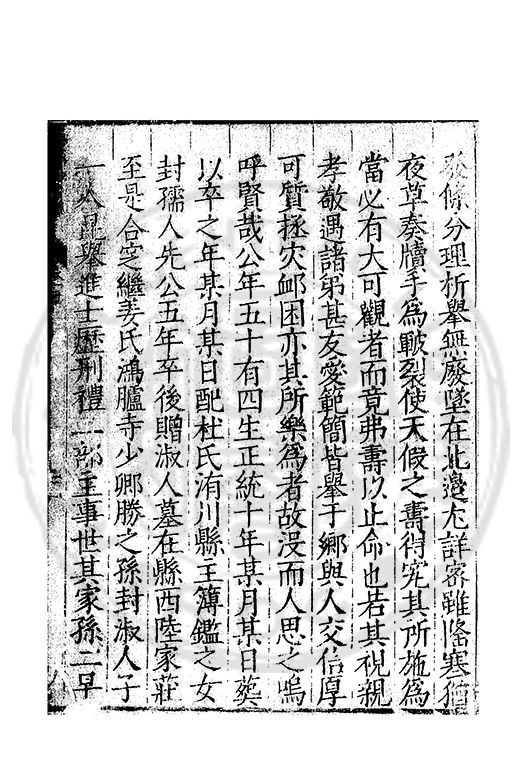 發條分理析舉無廢墜在北邊尤詳密雖隆寒猶
夜草奏牘手為皸裂使天假之壽得究其所施為
當必有大可觀者而竟弗壽以止命也若其視親
孝敬遇諸弟甚友愛範簡皆舉于鄉與人交信厚
可質拯灾衈困亦其所樂為者故没而人思之嗚
呼賢哉公年五十有四生正統十年某月某日葬
以卒之年某月某日配杜氏洧川縣主簿鑑之女
封孺人先公五年卒後贈淑人墓在縣西陸家莊
至是合窆繼姜氏鴻臚寺少卿勝之孫封淑人子
一人昆舉進士歷刑禮二部主事世其家孫二早